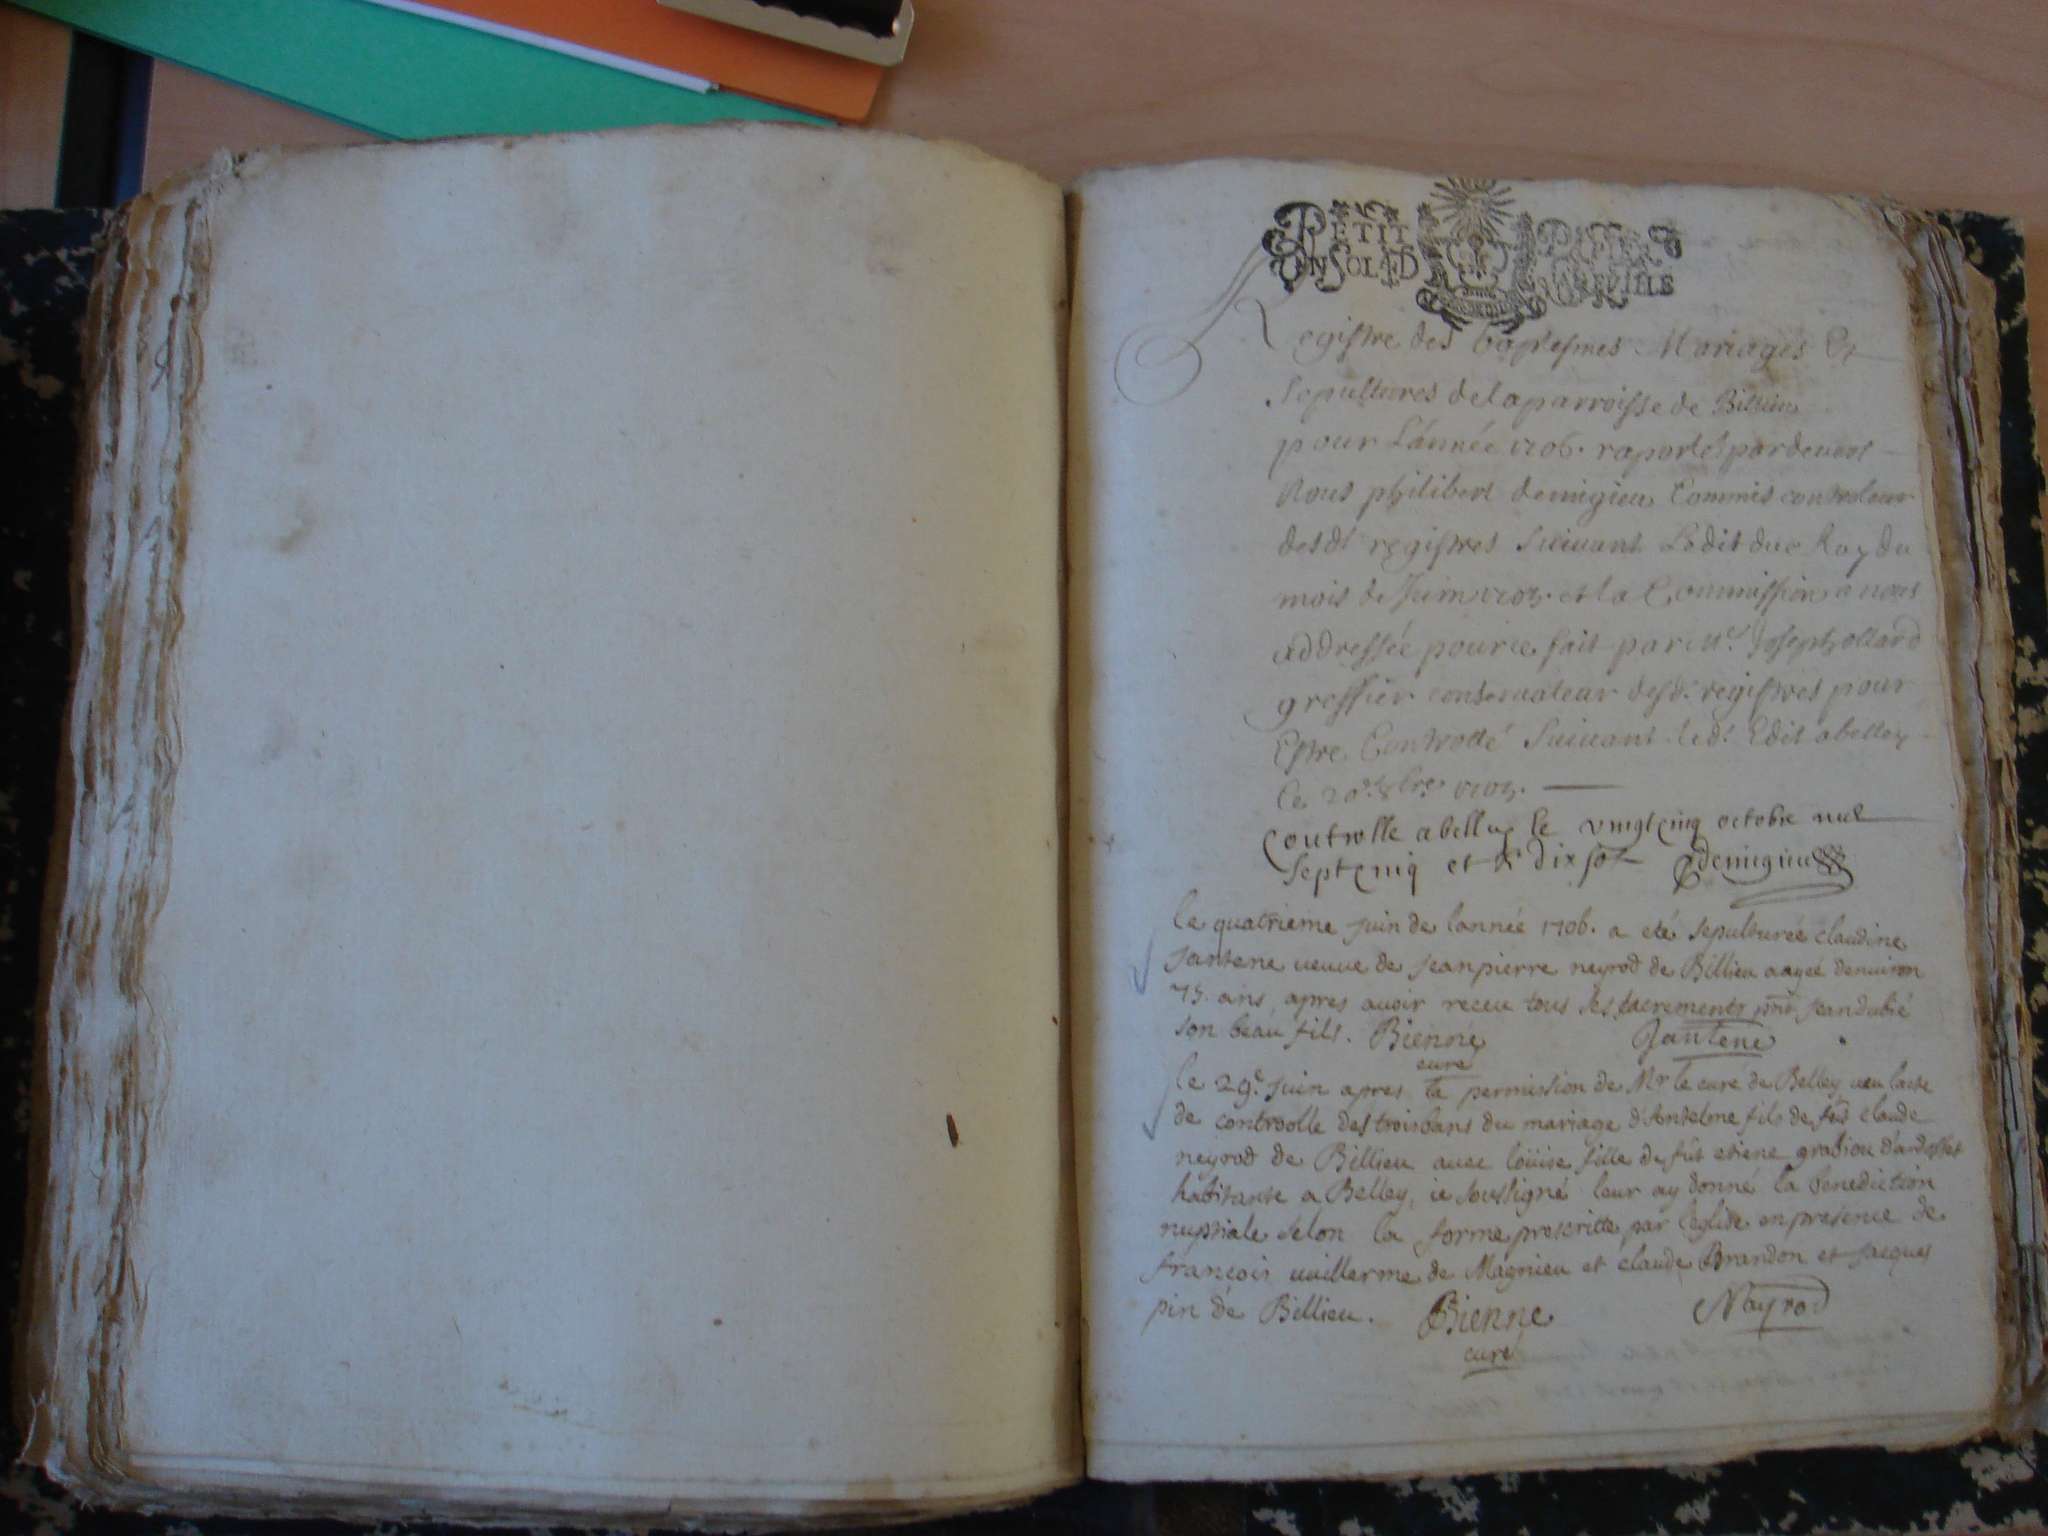 PETIT PAPIER
UN SOL 4D
Registre des baptesmes Mariages Et
Sepultures de la parroisse de Billieu
pour L'année 1706. raporté pardevant
Nous philibert demigieu Commis controleur
desdt registres Suivant Ledit du Roy du
mois de Juin 1705. et la Commission a nous
addressée pour ce fait par Mr. Joseph ollard
greffier conservateur desd. registres pour
Estre Controllé Suivant led. Edit a belley
Ce 20e 8bre 1705.
Controlle a belley le vingt cinq octobre mil
sept cinq et R dix sols Demigieu
le quatrieme juin de lannée 1706. a eté sepulturée claudine
Jantene veuve de jeanpierre neyrod de Billieu aagée denviron
75. ans, apres avoir receu tous ses sacrements pnt jean dubié
son beau fils. Bienne Jantene
curé
le 29e. juin apres la permission de Mr le curé de Belley veu lacte
de controolle des trois bans du mariage d'Antelme fils de feu claude
neyrod de Billieu avec loüise fille de fût etiene gradiou d'ardosset
habitante a Belley, ie soussigné leur ay donné la benediction
nuptiale selon la forme prescritte par l'eglise en presence de
françois vuillerme de Magnieu et claude Brandon et jacques
pin de Billieu. Bienne Nayrod
curé